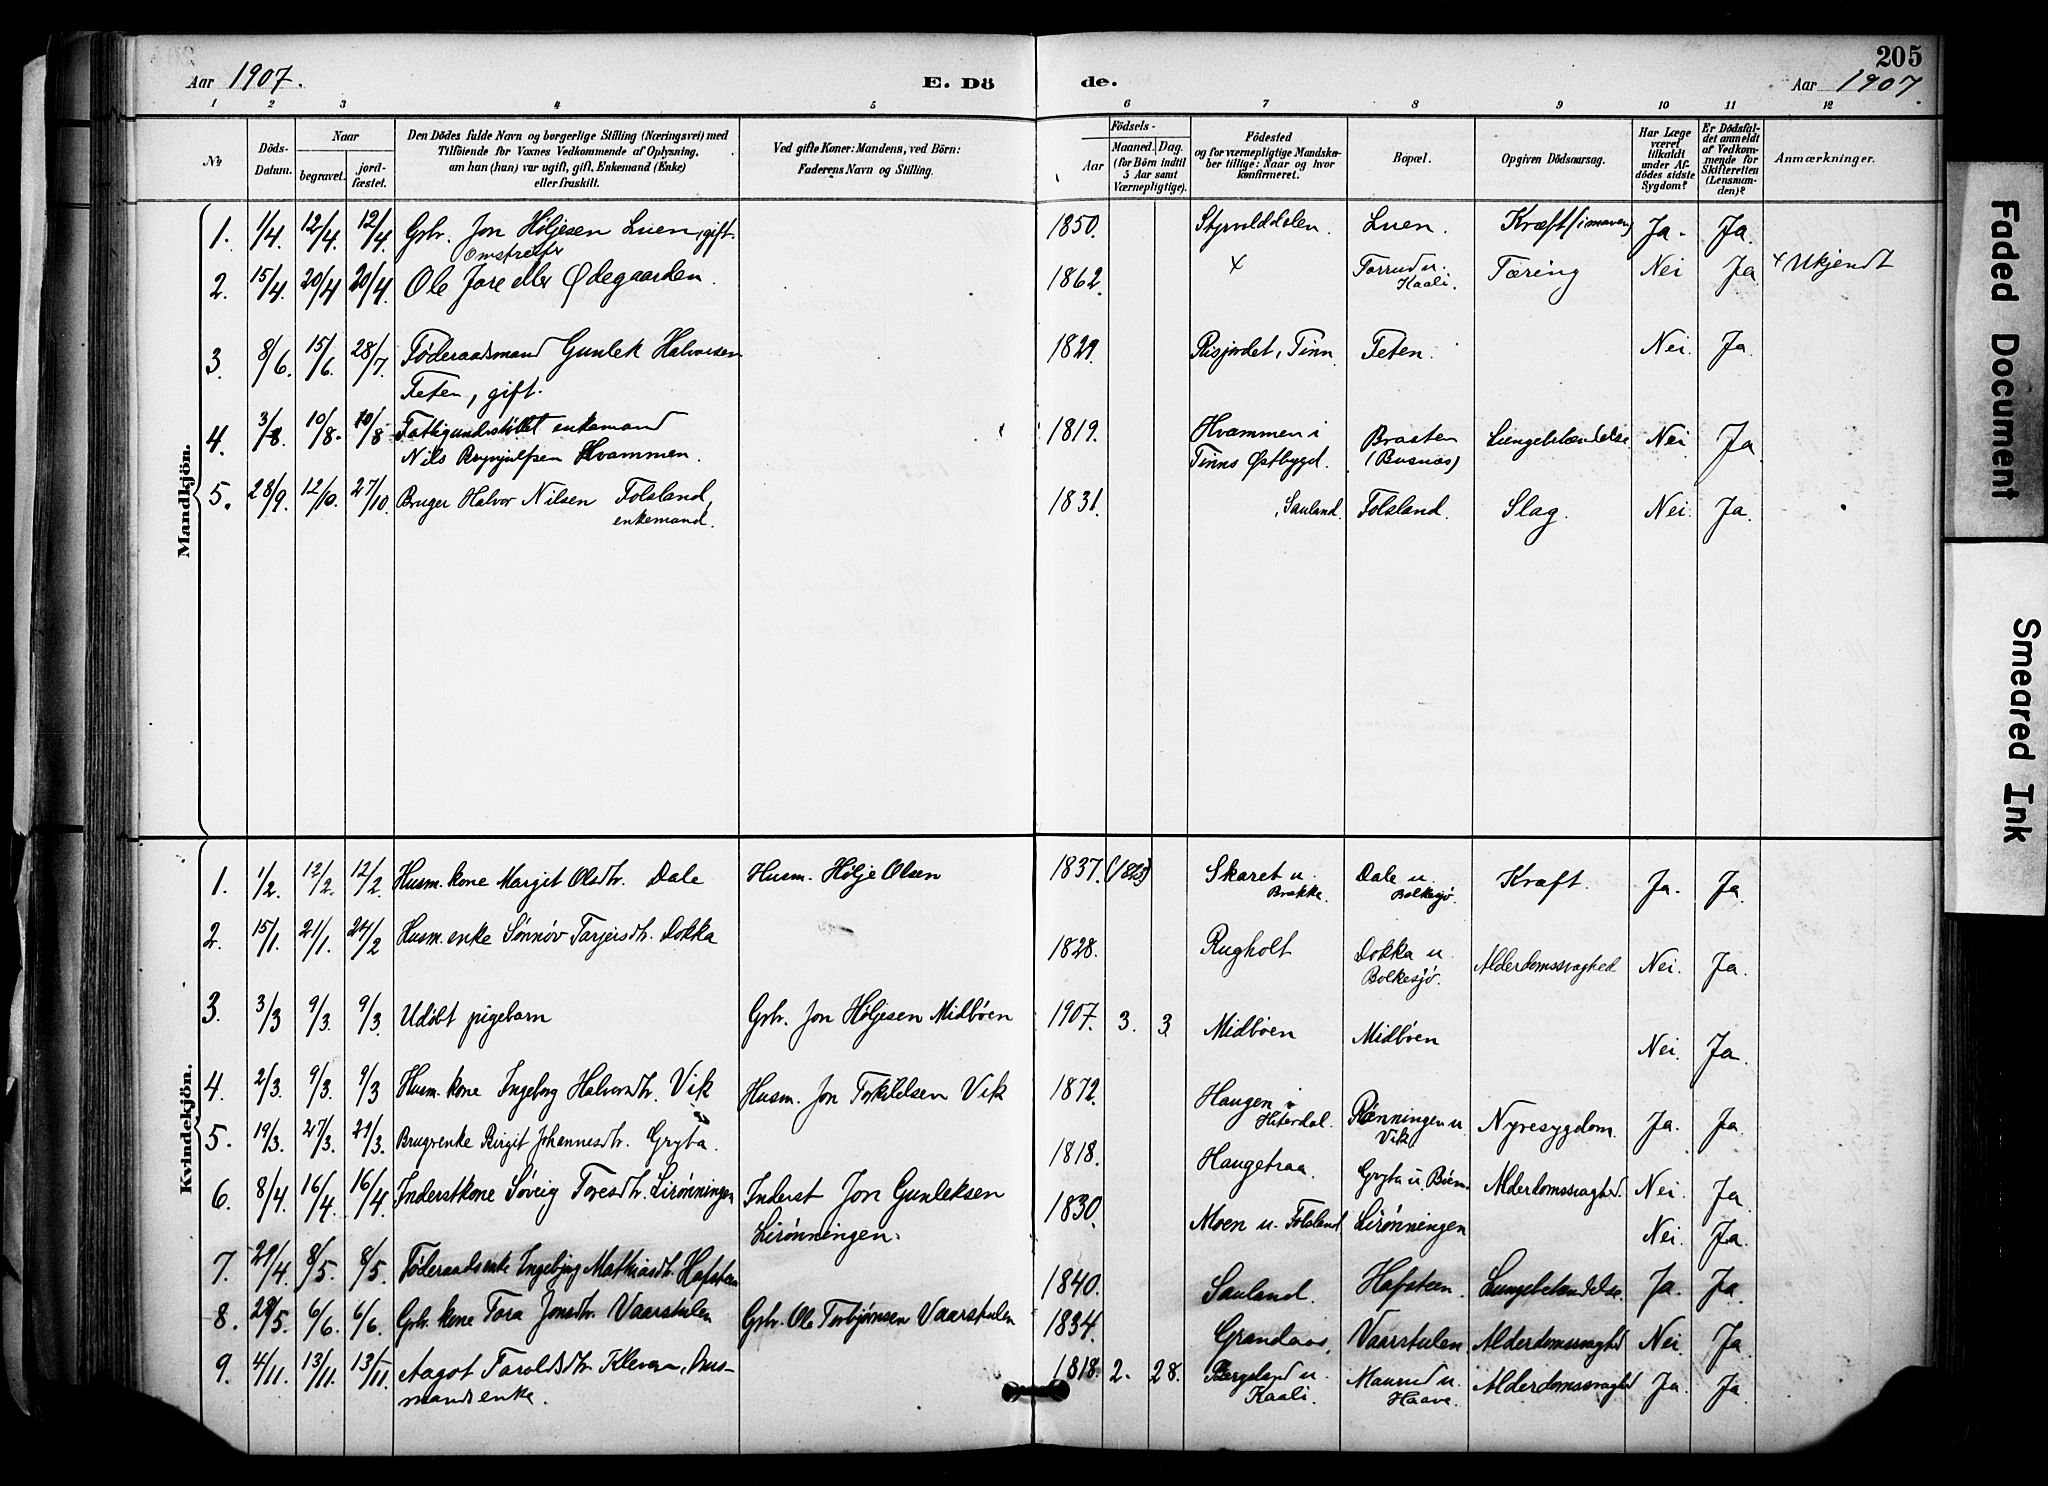 205
Aar 1907.
E. Dö
de.
Aar 1907.
1 2 3 4 5 6 7 8 9 10 11 12
No
Döds-
Datum.
Naar
begravet.
jord-
fæstet.
Den Dödes fulde Navn og borgerlige Stilling (Næringsvei) med
Tilföiende for Voxnes Vedkommende af Oplysning,
om han (hun) var ugift, gift, Enkemand (Enke)
eller fraskilt.
Ved gifte Koner: Mandens, ved Börn:
Faderens Navn og Stilling.
Födsels-
Aar
Maaned.
Dag.
(for Börn indtil
5 Aar samt
Værnepligtige).
Födested
og for værnepligtige Mandska-
ber tillige: Naar og hvor
konfirmeret.
Bopæl.
Opgiven Dödsaarsag.
Har Læge
været
tilkaldt
under Af-
dödes sidste
Sygdom?
Er Dödsfal-
det anmeldt
af Vedkom-
mende for
Skifteretten
(Lensman-
den)?
Anmærkninger.
Mandkjön.
1. 1/4. 12/4. 12/4. Grbr. Jon Høljesen Luen, gift. 1850. Luen. Kræft (i maven) Ja. Ja.
Omstreifer
2. 15/4. 20/4 20/4. Ole Jore eller Ødegaarden. 1862. x Torrud u. Tæring Nei Ja x Ukjendt
Kaali.
3. 8/6. 15/6. 28/7. Føderaadsmand Gunlek Halvorsen 1829. Risjordet, Tinn Teten. Nei. Ja.
Teten, gift.
4. 3/8. 10/8. 10/8 Fattigunderstøttet enkemand 1819. Hvammen i Braaten Lungebetændelse Nei. Ja
Nils Brynjulfsen Hvammen. Tinns Østbygd. (Busnæs)
5. 28/9. 12/10. 27/10. Bruger Halvor Nilsen Folsland, 1831. Sauland. Folsland. Slag. Nei. Ja.
enkemand.
Kvindekjön.
1. 1/2. 12/2. 12/2 Husm. kone Margit Olsdtr. Dale Husm. Hølje Olsen 1837. Skaret u. Dale u. Kræft. Ja. Ja.
Brekka. Bolkesjø.
2. 15/1. 21/1. 24/2 Husm. enke Sønnøv Tarjeisdtr. Dokka 1828. Rugholt Dokka u. Alderdomssvaghed Nei. Ja.
Bolkesjø.
3. 3/3 9/3. 9/3. Udøbt pigebarn Grbr. Jon Høljesen Midbøen 1907. 3. 3. Midbøen Midbøen Nei. Ja.
4. 2/3. 9/3. 9/3 Husm. kone Ingeborg Halvorsdtr. Vik Husm. Jon Torkildsen Vik 1872. Haugen i Rønningen u. Nyresygdom. Ja. Ja.
Hiterdal. Vik
5. 19/3. 27/3. 29/3. Brugerenke Birgit Johannesdtr. Gryta. 1818. Haugetraa. Gryta u. Bøen. Alderdomssvaghed. Nei. Ja
6. 8/4. 16/4. 16/4. Inderstkone Søveig Toresdtr. Lirønningen Inderst Jon Gunleksen 1830. Moen u. Folsland Lirønningen Nei. Ja.
Lirønningen.
7. 29/4. 8/5. 8/5. Føderaadsenke Ingebjørg Mathiasdtr. Hafsteen 1840. Sauland. Hafsteen. Lungebetændelse. Ja. Ja.
8. 28/5. 6/6. 6/6. Grbr. kone Tora Jonsdtr. Vaarstulen Grbr. Ole Torbjørnsen Vaarstulen 1834. Grandaas, Vaarstulen Alderdomssvaghed Nei. Ja.
9. 4/11. 13/11. 13/11. Aagot Taroldsdtr. Kleven, Hus- 1818. 2. 28. Bergeland u. Maurud u. Alderdomssvaghed Ja. Ja.
mandsenke. Kaali. Haave.
Faded Document
Smeared Ink